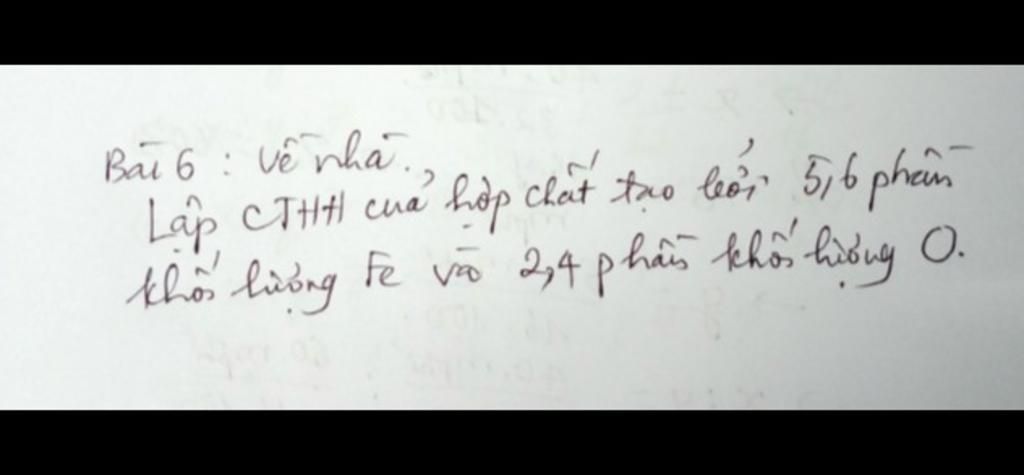 Bài 6 : Về nhà.
Lập CTHH của hợp chất tạo bởi 5,6 phần
khối lượng Fe và 2,4 phần khối lượng O.